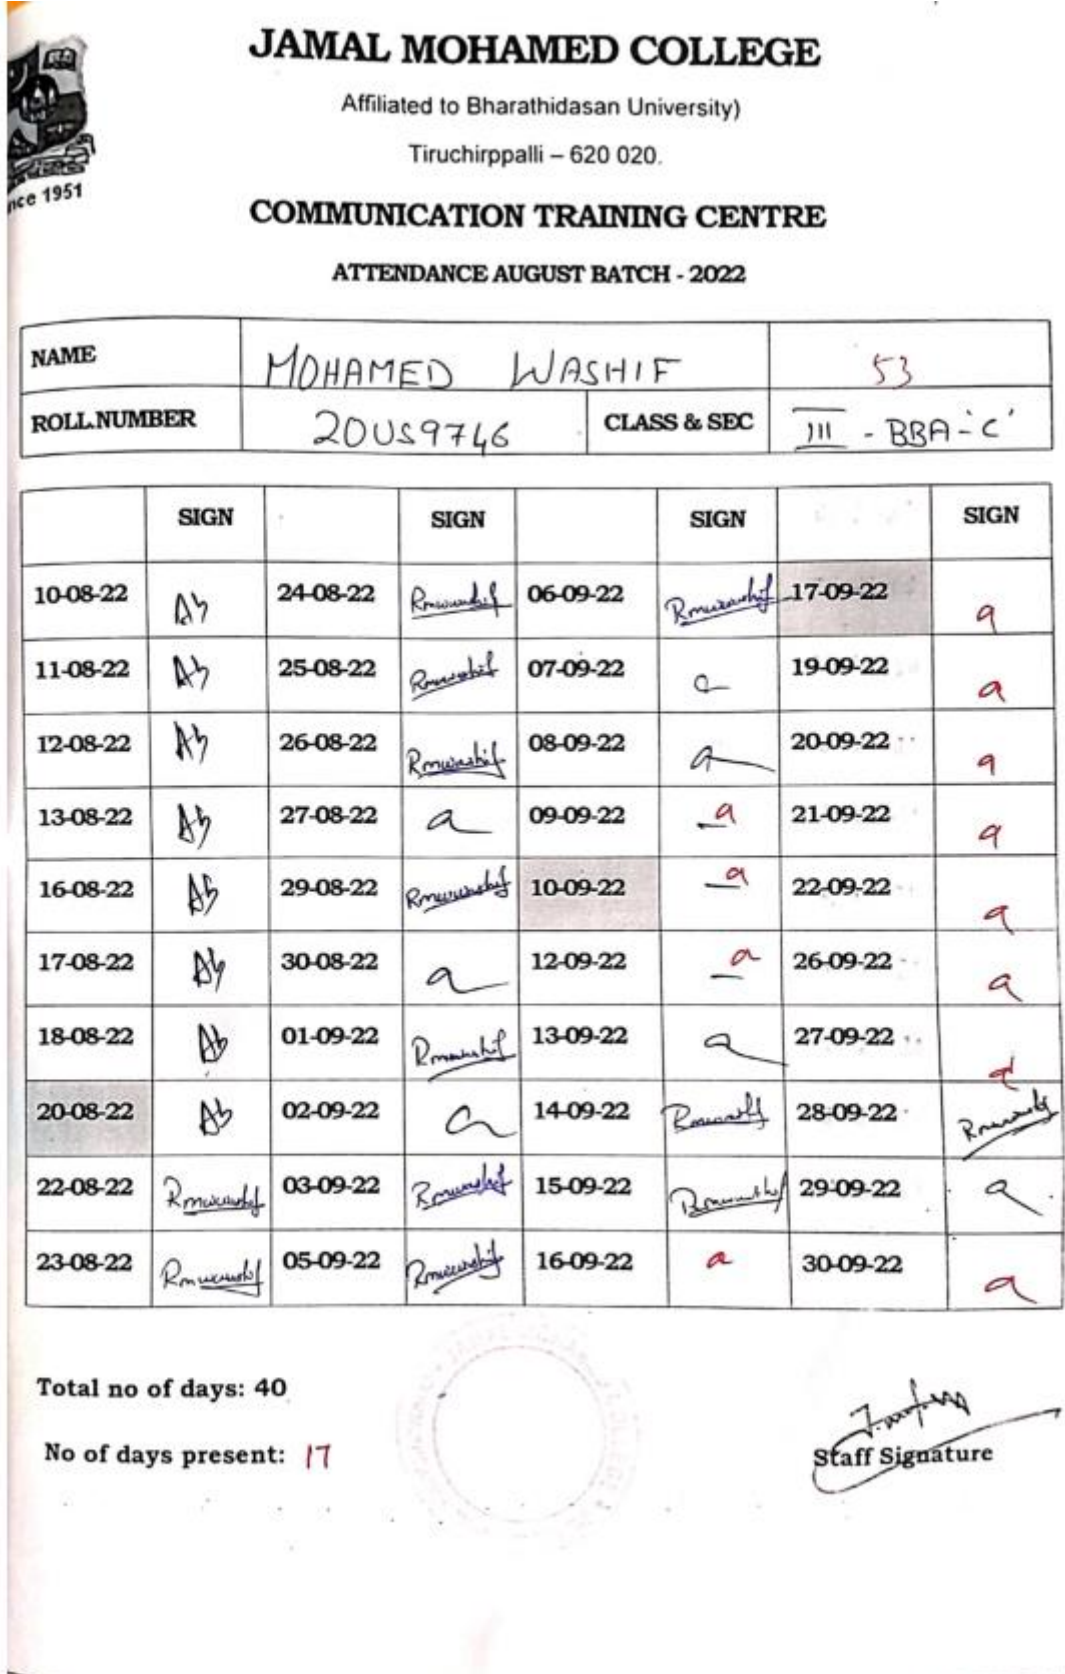 JAMAL MOHAMED COLLEGE
Affiliated to Bharathidasan University)
Tiruchirppalli – 620 020.
nce 1951
COMMUNICATION TRAINING CENTRE
ATTENDANCE AUGUST BATCH - 2022
NAME MOHAMED WASHIF 53
ROLL.NUMBER 20US9746 CLASS & SEC III - BBA - 'C'
SIGN SIGN SIGN SIGN
10-08-22 Ab 24-08-22 06-09-22 17-09-22 a
11-08-22 Ab 25-08-22 07-09-22 a 19-09-22 a
12-08-22 Ab 26-08-22 08-09-22 a 20-09-22 a
13-08-22 Ab 27-08-22 a 09-09-22 a 21-09-22 a
16-08-22 Ab 29-08-22 10-09-22 a 22-09-22 a
17-08-22 Ab 30-08-22 a 12-09-22 a 26-09-22 a
18-08-22 Ab 01-09-22 13-09-22 a 27-09-22 a
20-08-22 Ab 02-09-22 a 14-09-22 28-09-22
22-08-22 03-09-22 15-09-22 29-09-22 a
23-08-22 05-09-22 16-09-22 a 30-09-22 a
Total no of days: 40
No of days present: 17
Staff Signature